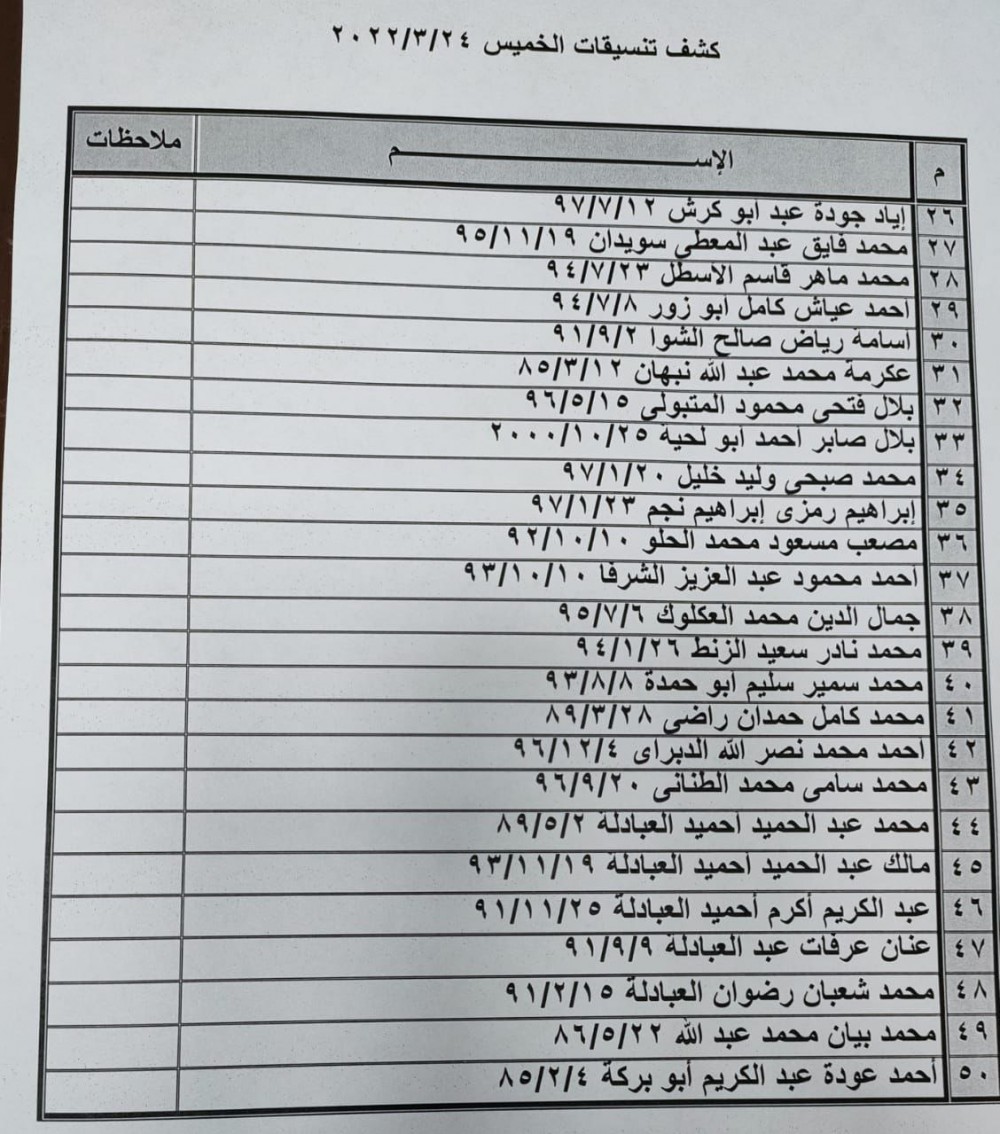 كشف تنسيقات الخميس ٢٠٢٢/٣/٢٤
م الإســـــــــم ملاحظات
٢٦ إياد جودة عبد ابو كرش ٩٧/٧/١٢
٢٧ محمد فايق عبد المعطى سويدان ٩٥/١١/١٩
٢٨ محمد ماهر قاسم الاسطل ٩٤/٧/٢٣
٢٩ احمد عياش كامل ابو زور ٩٤/٧/٨
٣٠ اسامة رياض صالح الشوا ٩١/٩/٢
٣١ عكرمة محمد عبد الله نبهان ٨٥/٣/١٢
٣٢ بلال فتحى محمود المتبولى ٩٦/٥/١٥
٣٣ بلال صابر احمد ابو لحية ٢٠٠٠/١٠/٢٥
٣٤ محمد صبحى وليد خليل ٩٧/١/٢٠
٣٥ إبراهيم رمزى إبراهيم نجم ٩٧/١/٢٣
٣٦ مصعب مسعود محمد الحلو ٩٢/١٠/١٠
٣٧ احمد محمود عبد العزيز الشرفا ٩٣/١٠/١٠
٣٨ جمال الدين محمد العكلوك ٩٥/٧/٦
٣٩ محمد نادر سعيد الزنط ٩٤/١/٢٦
٤٠ محمد سمير سليم ابو حمدة ٩٣/٨/٨
٤١ محمد كامل حمدان راضى ٨٩/٣/٢٨
٤٢ احمد محمد نصر الله الدبراى ٩٦/١٢/٤
٤٣ محمد سامى محمد الطنانى ٩٦/٩/٢٠
٤٤ محمد عبد الحميد احميد العبادلة ٨٩/٥/٢
٤٥ مالك عبد الحميد احميد العبادلة ٩٣/١١/١٩
٤٦ عبد الكريم أكرم أحميد العبادلة ٩١/١١/٢٥
٤٧ عنان عرفات عبد العبادلة ٩١/٩/٩
٤٨ محمد شعبان رضوان العبادلة ٩١/٢/١٥
٤٩ محمد بيان محمد عبد الله ٨٦/٥/٢٢
٥٠ أحمد عودة عبد الكريم أبو بركة ٨٥/٢/٤